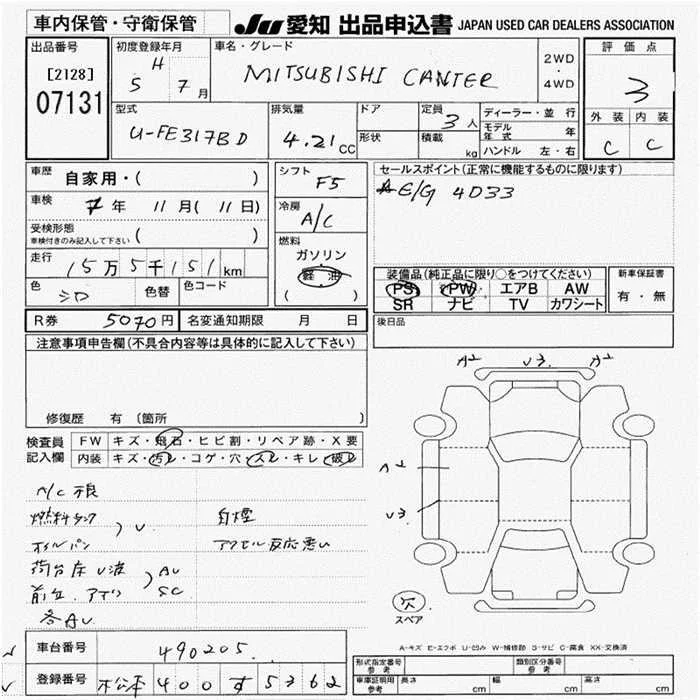 車内保管・守衛保管
JU 愛知 出品申込書 JAPAN USED CAR DEALERS ASSOCIATION
出品番号
[2128]
07131
初度登録年月
H
5 7月
車名・グレード
MITSUBISHI CANTER
2WD
・
4WD
評価点
3
外装 内装
C C
型式
U-FE317BD
排気量
4.21cc
ドア
形状
定員 3人
積載 kg
ディーラー・並行
モデル年式 年
ハンドル 左・右
車歴 自家用・( )
車検 7年 11月( 11日)
受検形態
車検付きのみ記入して下さい ( )
走行 15万5千151km
色 シロ 色替 色コード
シフト F5
冷房 A/C
燃料
ガソリン
軽油
( )
セールスポイント(正常に機能するものに限ります)
E/G 4D33
装備品(純正品に限り○をつけてください)
PS PW エアB AW
SR ナビ TV カワシート
新車保証書
有・無
後日品
R券 5070円 名変通知期限 月 日
注意事項申告欄(不具合内容等は具体的に記入して下さい)
修復歴 有 〔箇所 〕
検査員記入欄
FW キズ・飛石・ヒビ割・リペア跡・X要
内装 キズ・汚れ・コゲ・穴・スレ・キレ・破れ
A/C 不良
燃料タンク
オイルパン
) U
白煙
アクセル反応悪い
荷台床 U
) AU
SC
各AU
A2 U3 A2
A2
U3
欠
スペア
A-キズ E-エクボ U-凹み W-補修跡 S-サビ C-腐食 XX-交換済
車台番号 490205
登録番号 松本 400 す 5362
形式指定番号 参考
類別区分番号 参考
車庫証明用 参考 長さ cm 幅 cm 高さ cm